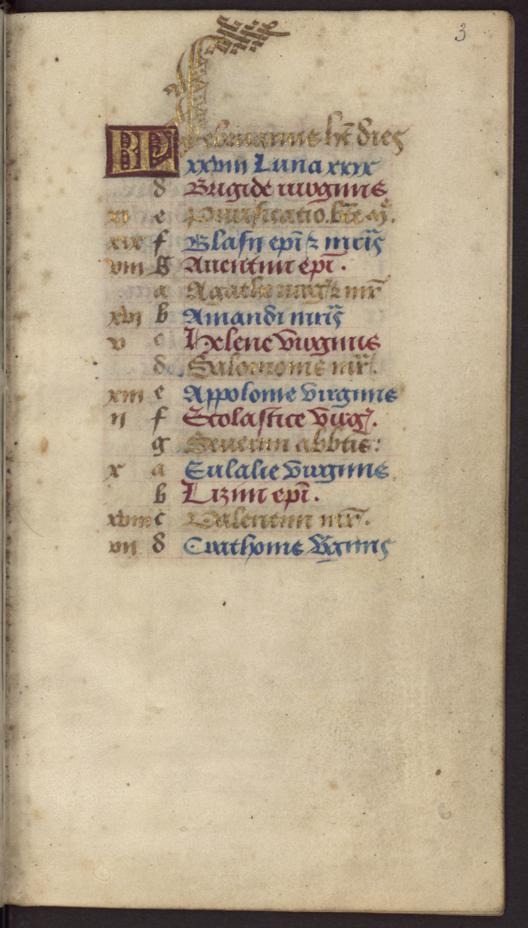 3
KL Februarius ht dies
xxviii Luna xxix
d Brigide virginis
xi e Purificatio. bte M.
xix f Blasii epi z mris
viii g Aventini epi.
a Agathe virg z mr
xvi b Amandi mris
v c Helene virginis
d Salomonis mr.
xiii e Appolonie virginis
ii f Scolastice virg.
g Severini abbtis:
x a Eulalie virginis
b Lizini epi.
xviii c Valentini mr.
vii d